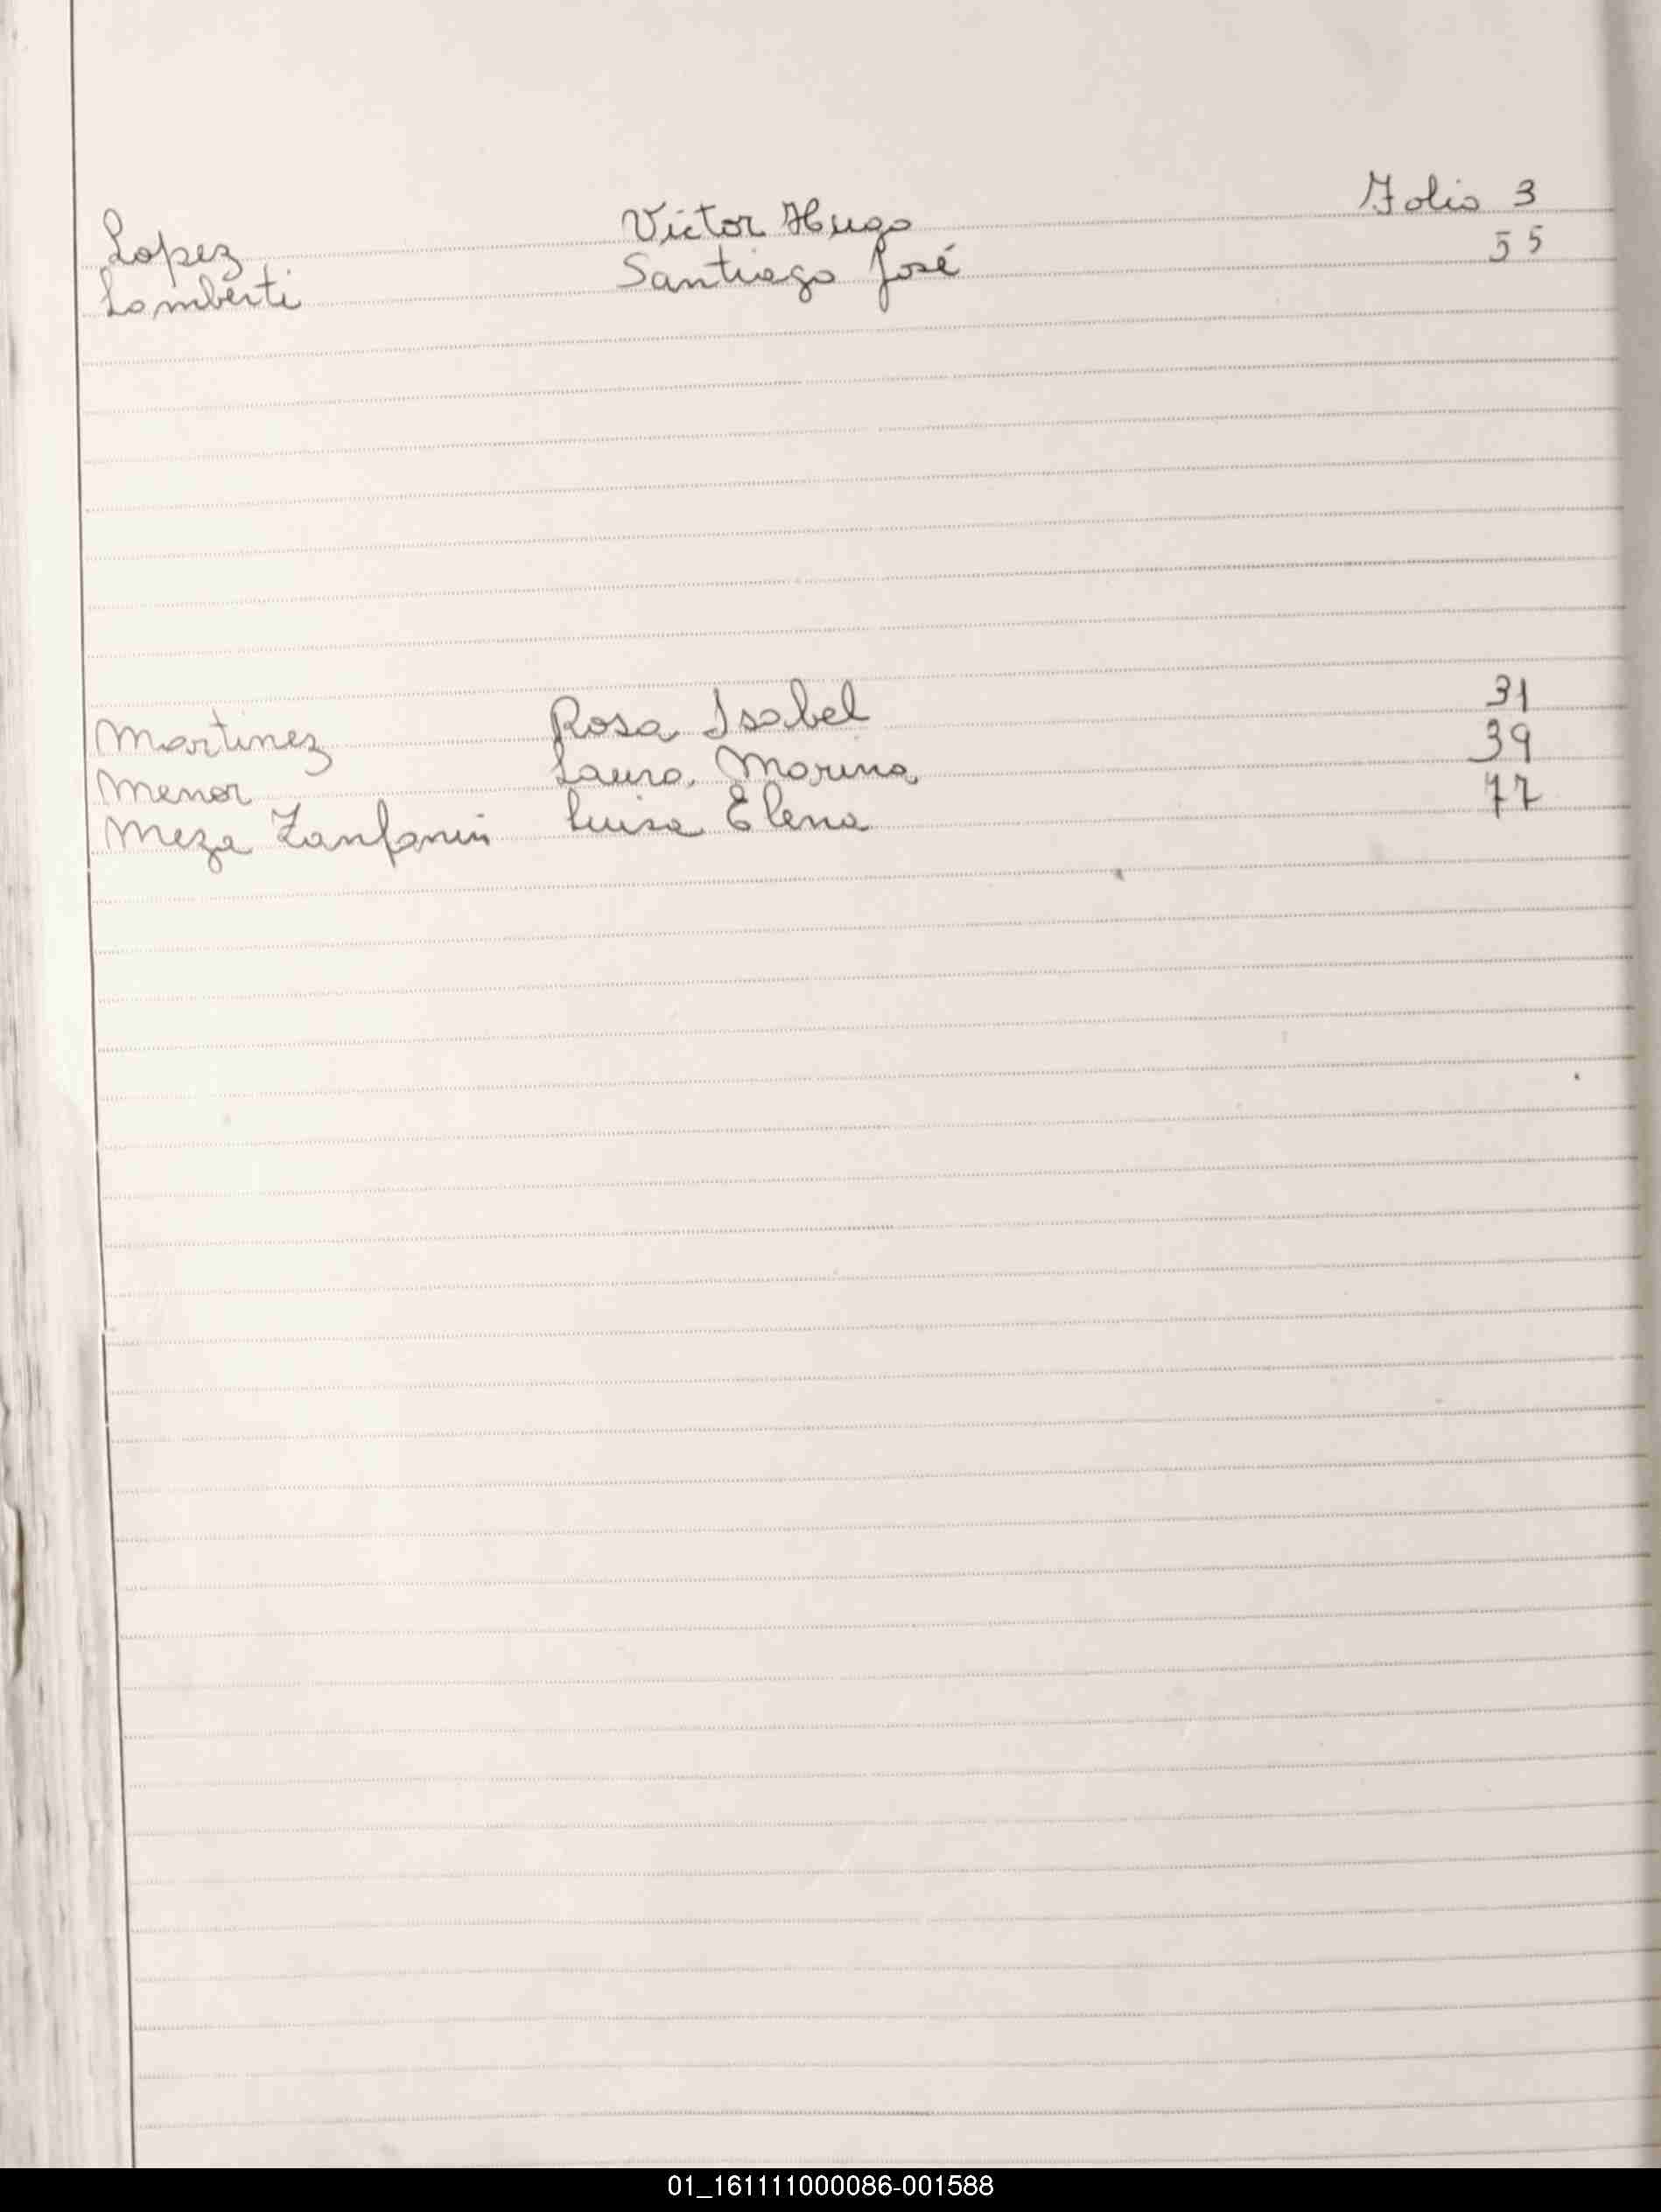 Lopez Victor Hugo Folio 3
Lamberti Santiago José 55
Martinez Rosa Isabel 31
Menor Laura Marina 39
Meza Luisa Elena 77
01_161111000086-001588